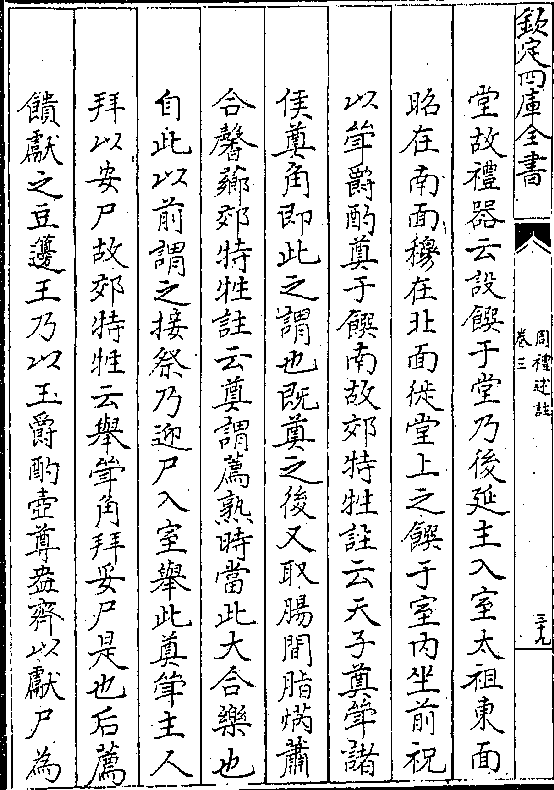 欽定四庫全書
周禮述註
卷三
三十九
堂故禮器云設饌于堂乃後延主入室太祖東面
昭在南面穆在北面徙堂上之饌于室内坐前祝
以斝爵酌奠于饌南故郊特牲註云天子奠斝諸
侯奠角即此之謂也既奠之後又取腸間脂焫蕭
合馨薌郊特牲註云奠謂薦熟時當此大合樂也
自此以前謂之接祭乃迎尸入室舉此奠斝主人
拜以安尸故郊特牲云舉斝角拜妥尸是也后薦
饋獻之豆籩王乃以玉爵酌壺尊盎齊以獻尸為